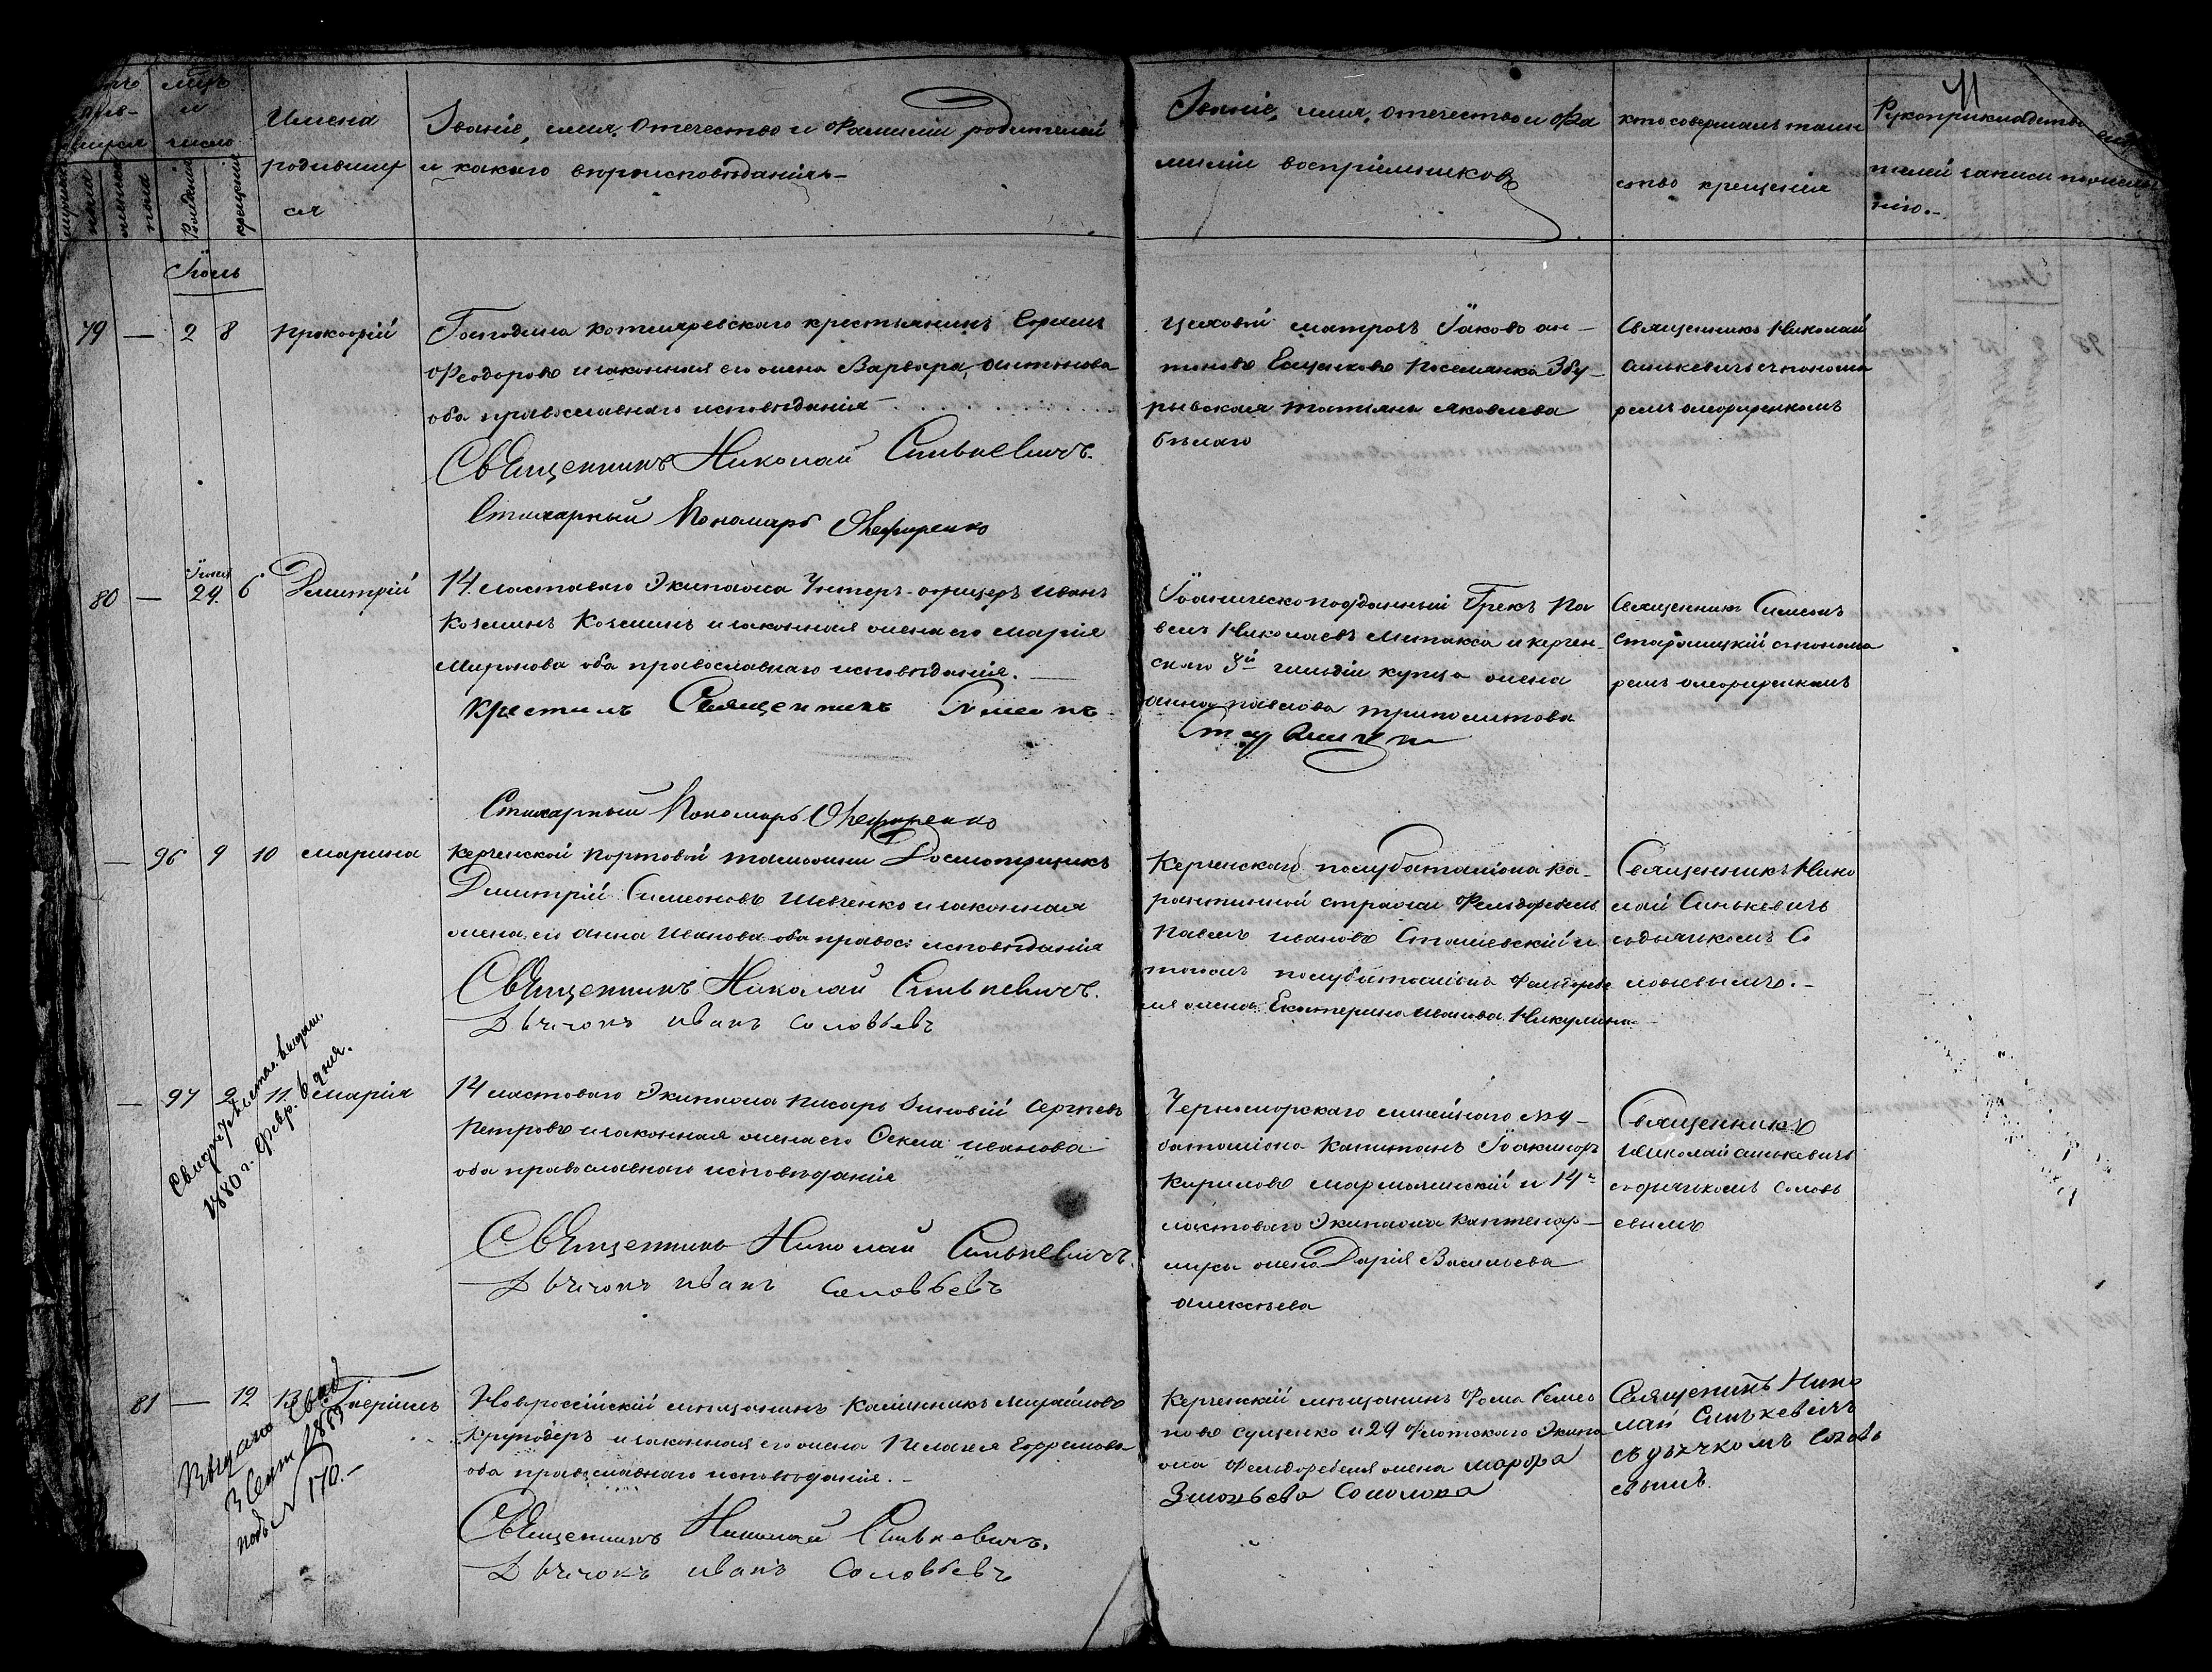 11
мѣс.
и
число
Имена
родивших
ся
Званіе, имя, отечество и фамиліи родителей
и какаго вѣроисповѣданія
Званіе, имя, отечество и фа
миліи воспріемниковъ
кто совершалъ таин
ство крещенія
Рукоприкладство
телей записи по желa
нію.
рожденія
крещенія
Іюль
79 — 2 8 Прокофій
Господина Котляревскаго крестьянинъ
Феодоровъ и законная его жена Варвара Антонова
оба православнаго исповѣданія
Священникъ Николай Синькевичъ.
Стихарный Пономарь
Цеховой матросъ Іаковъ Ан-
тоновъ поселянка Збу-
рьевская Татьяна Яковлева
Бѣлаго
Священникъ Николай
Синькевичъ съ понома
ремъ
80 — Іюня 29. 6 Димитрій
14 ластоваго Экипажа Унтеръ-офицеръ Иванъ
Козминъ Козминъ и законная жена его Марія
Миронова оба православнаго исповѣданія.
Крестилъ Священникъ Симеонъ
Стихарный Пономарь
Іоаническоподданный Грекъ Па
велъ Николаевъ Митакса и керчен-
скаго 3й гильдіи купца жена
Анна Павлова Триполитова
Священникъ Симеонъ
съ понома
ремъ
— 96 9 10 Марина
Керченской Портовой таможни Досмотрщикъ
Димитрій Симеоновъ Шевченко и законная
жена его Анна Иванова оба правос: исповѣданія
Священникъ Николай Синькевичъ.
Дьячокъ Иванъ Соловьевъ
Керченскаго полубаталіона ка-
рантинной стражи Фельдфебель
Павелъ Ивановъ Сташевскій и
тогожъ полубаталіона Фельдфебе
ля жена Екатерина Иванова Никулина
Священникъ Нико
лай Синькевичъ
съ дьячкомъ Со
ловьевымъ.-
— 97 9 11. Марія
14 ластоваго Экипажа писарь Зиновій Сергѣевъ
Петровъ и законная жена его Ѳекла Иванова
оба православнаго исповѣданія
Священникъ Николай Синькевичъ.
Дьячокъ Иванъ Соловьевъ
Черноморскаго линейнаго №
баталіона Капитанъ Іоакимъ
Кириловъ и 14го
ластоваго Экипажа каптенар-
муса жена Дарія Васильева
Алексѣева
Священникъ
Николай Синькевичъ
съ дьячкомъ Соловь
евымъ
Свидѣтельст. выдан.
1880 г. Февр. 6 дня.
81 — 12 13 Гавріилъ
Новороссійскій мѣщанинъ Калинникъ Михайловъ
и законная его жена Пелагея Ефремова
оба православнаго исповѣданія.-
Священникъ Николай Синькевичъ.
Дьячокъ Иванъ Соловьевъ
Керченскій мѣщанинъ Фома Семе
новъ Сущенко и 29 Флотскаго Экипа
жа Фельдфебеля жена Марфа
Зиновьева Соколова
Священникъ Нико
лай Синькевичъ
съ дьячкомъ Соловь
евымъ.
Выдано Свид
3 Сент 1853
подъ № 170.-